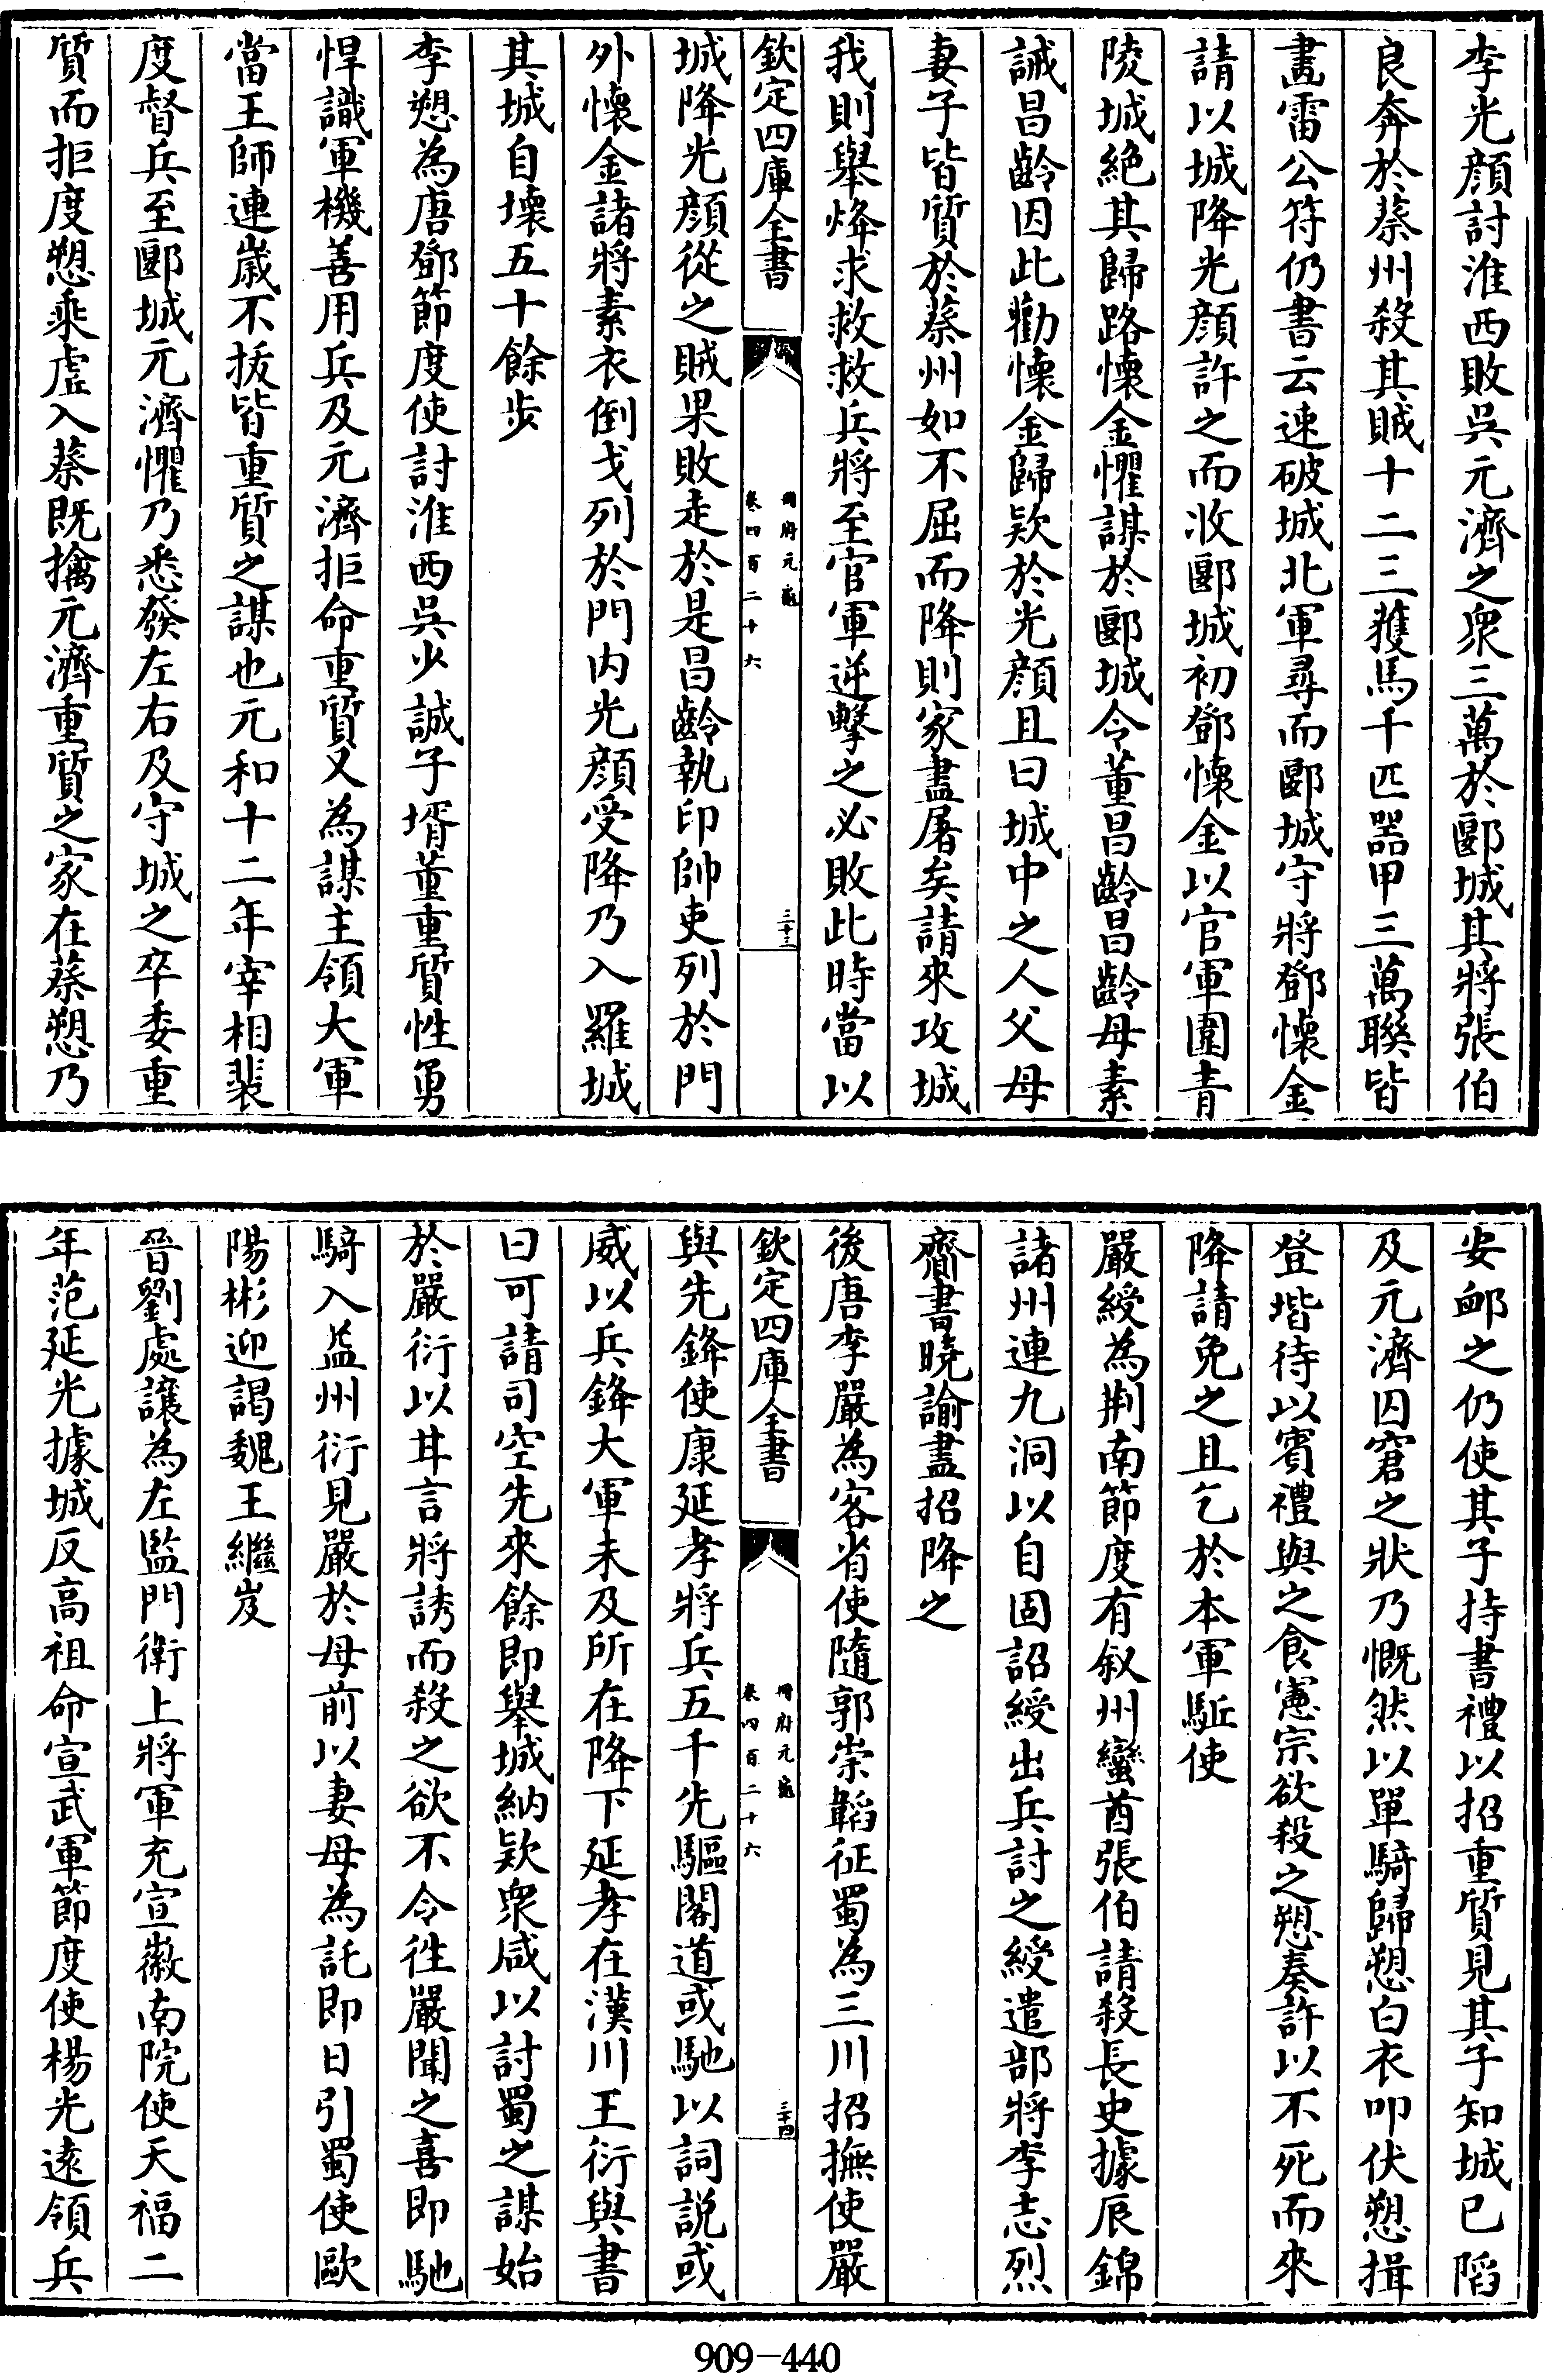 李光顔討淮西敗吳元濟之衆三萬於郾城其將張伯
良奔於蔡州殺其賊十二三獲馬千匹器甲三萬聯皆
畫雷公符仍書云速破城北軍尋而郾城守將鄧懷金
請以城降光顔許之而收郾城初鄧懷金以官軍圍青
陵城絶其歸路懷金懼謀於郾城令董昌齡昌齡母素
誡昌齡因此勸懷金歸欵於光顔且曰城中之人父母
妻子皆質於蔡州如不屈而降則家盡屠矣請來攻城
我則舉烽求救救兵將至官軍逆擊之必敗此時當以
欽定四庫全書
冊府元龜
卷四百二十六
三十三
城降光顔從之賊果敗走於是昌齡執印帥吏列於門
外懷金諸將素衣倒戈列於門内光顔受降乃入羅城
其城自壊五十餘步
李愬為唐鄧節度使討淮西吳少誠子壻董重質性勇
悍識軍機善用兵及元濟拒命重質又為謀主領大軍
當王師連嵗不拔皆重質之謀也元和十二年宰相裴
度督兵至郾城元濟懼乃悉發左右及守城之卒委重
質而拒度愬乘虚入蔡既擒元濟重質之家在蔡愬乃
安䘏之仍使其子持書禮以招重質見其子知城已陷
及元濟囚窘之狀乃慨然以單騎歸愬白衣叩伏愬揖
登堦待以賓禮與之食憲宗欲殺之愬奏許以不死而來
降請免之且乞於本軍駈使
嚴綬為荆南節度有叙州蠻酋張伯請殺長史據辰錦
諸州連九洞以自固詔綬出兵討之綬遣部將李志烈
齎書曉諭盡招降之
後唐李嚴為客省使隨郭崇韜征蜀為三川招撫使嚴
欽定四庫全書
冊府元龜
卷四百二十六
三十四
與先鋒使康延孝將兵五千先驅閣道或馳以詞説或
威以兵鋒大軍未及所在降下延孝在漢川王衍與書
曰可請司空先來餘即舉城納欵衆咸以討蜀之謀始
於嚴衍以甘言將誘而殺之欲不令徃嚴聞之喜即馳
騎入益州衍見嚴於母前以妻母為託即日引蜀使歐
陽彬迎謁魏王繼岌
晉劉處讓為左監門衛上將軍充宣徽南院使天福二
年范延光據城反高祖命宣武軍節度使楊光遠領兵
909-440